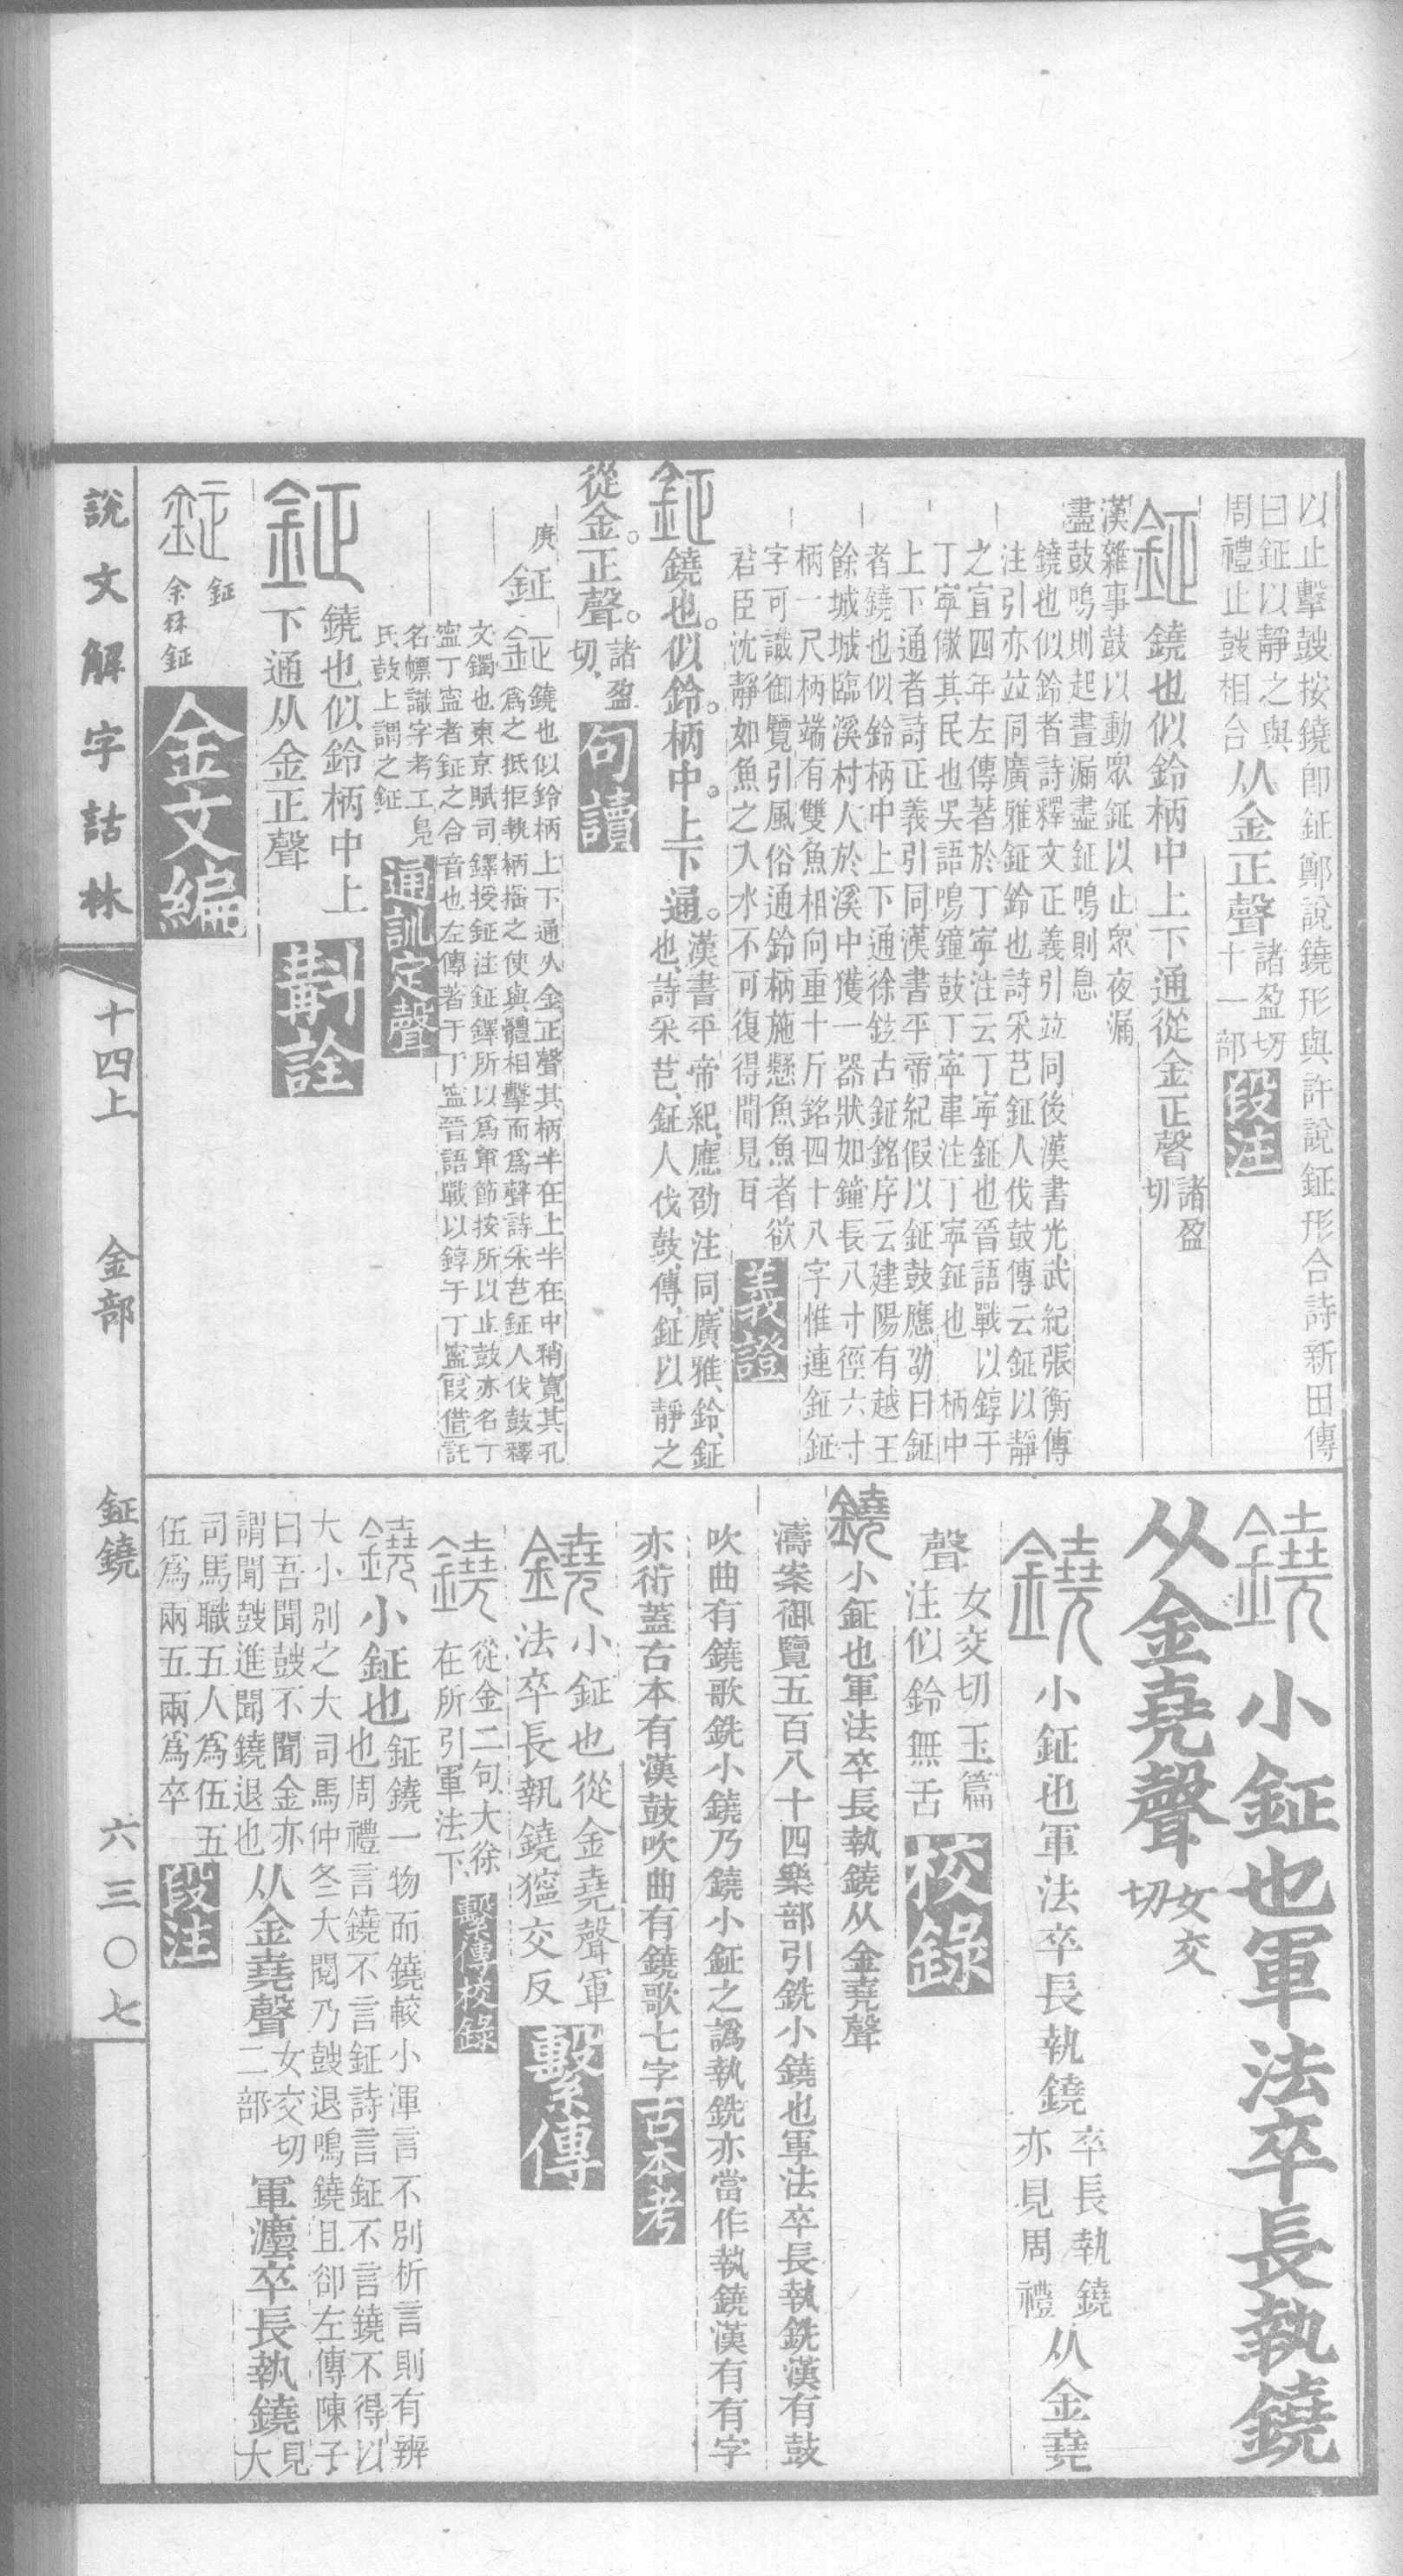 以止擊鼓按鐃卽鉦鄭說鐃形與許說鉦形合詩新田傳
曰鉦以靜之與
周禮止鼓相合从金正聲諸盈切
十一部段注
鉦鐃也似鈴柄中上下通從金正聲諸盈
切
漢雜事鼓以動眾鉦以止眾夜漏
盡鼓鳴則起晝漏盡鉦鳴則息
鐃也似鈴者詩釋文正義引竝同後漢書光武紀張衡傳
注引亦竝同廣雅鉦鈴也詩采芑鉦人伐鼓傳云鉦以靜
之宣四年左傳著於丁寧注云丁寧鉦也晉語戰以錞于
丁寧儆其民也吳語鳴鐘鼓丁寧韋注丁寧鉦也 柄中
上下通者詩正義引同漢書平帝紀假以鉦鼓應劭曰鉦
者鐃也似鈴柄中上下通徐鉉古鉦銘序云建陽有越王
餘城城臨溪村人於溪中獲一器狀如鐘長八寸徑六寸
柄一尺柄端有雙魚相向重十斤銘四十八字惟連鉦鉦
字可識御覽引風俗通鈴柄施懸魚魚者欲
君臣沈靜如魚之入水不可復得聞見耳義證
鉦鐃也。似鈴。柄中。上下通。漢書平帝紀、應劭注同、廣雅、鈴、鉦
也、詩采芑、鉦人伐鼓、傳、鉦以靜之
從金。正聲。諸盈
切、句讀
庚鉦
鉦鐃也似鈴柄上下通从金正聲其柄半在上半在中稍寬其孔
爲之抵拒執柄搖之使與體相擊而爲聲詩采芑鉦人伐鼓釋
文鐲也東京賦司鐸授鉦注鉦鐸所以爲軍節按所以止鼓亦名丁
寍丁寍者鉦之合音也左傳著于丁寍晉語戰以錞于丁寍假借託
名幖識字考工鳧
氏鼓上謂之鉦通訓定聲
鉦鐃也似鈴柄中上
下通从金正聲斠詮
鉦鉦
余冉鉦金文編
說文解字詁林 十四上 金部 鉦鐃 六三〇七
鐃小鉦也軍法卒長執鐃
从金堯聲女交
切
鐃小鉦也軍法卒長執鐃卒長執鐃
亦見周禮从金堯
聲女交切玉篇
注似鈴無舌校錄
鐃小鉦也軍法卒長執鐃从金堯聲
濤案御覽五百八十四樂部引銑小鐃也軍法卒長執銑漢有鼓
吹曲有鐃歌銑小鐃乃鐃小鉦之譌執銑亦當作執鐃漢有有字
亦衍蓋古本有漢鼓吹曲有鐃歌七字古本考
鐃小鉦也從金堯聲軍
法卒長執鐃獶交反繫傳
鐃從金二句、大徐
在所引軍法下、繫傳校錄
鐃小鉦也鉦鐃一物而鐃較小渾言不別析言則有辨
也周禮言鐃不言鉦詩言鉦不言鐃不得以
大小別之大司馬仲冬大閱乃鼓退鳴鐃且卻左傳陳子
曰吾聞鼓不聞金亦
謂聞鼓進聞鐃退也从金堯聲女交切
二部軍灋卒長執鐃見
大
司馬職五人爲伍五
伍爲兩五兩爲卒段注